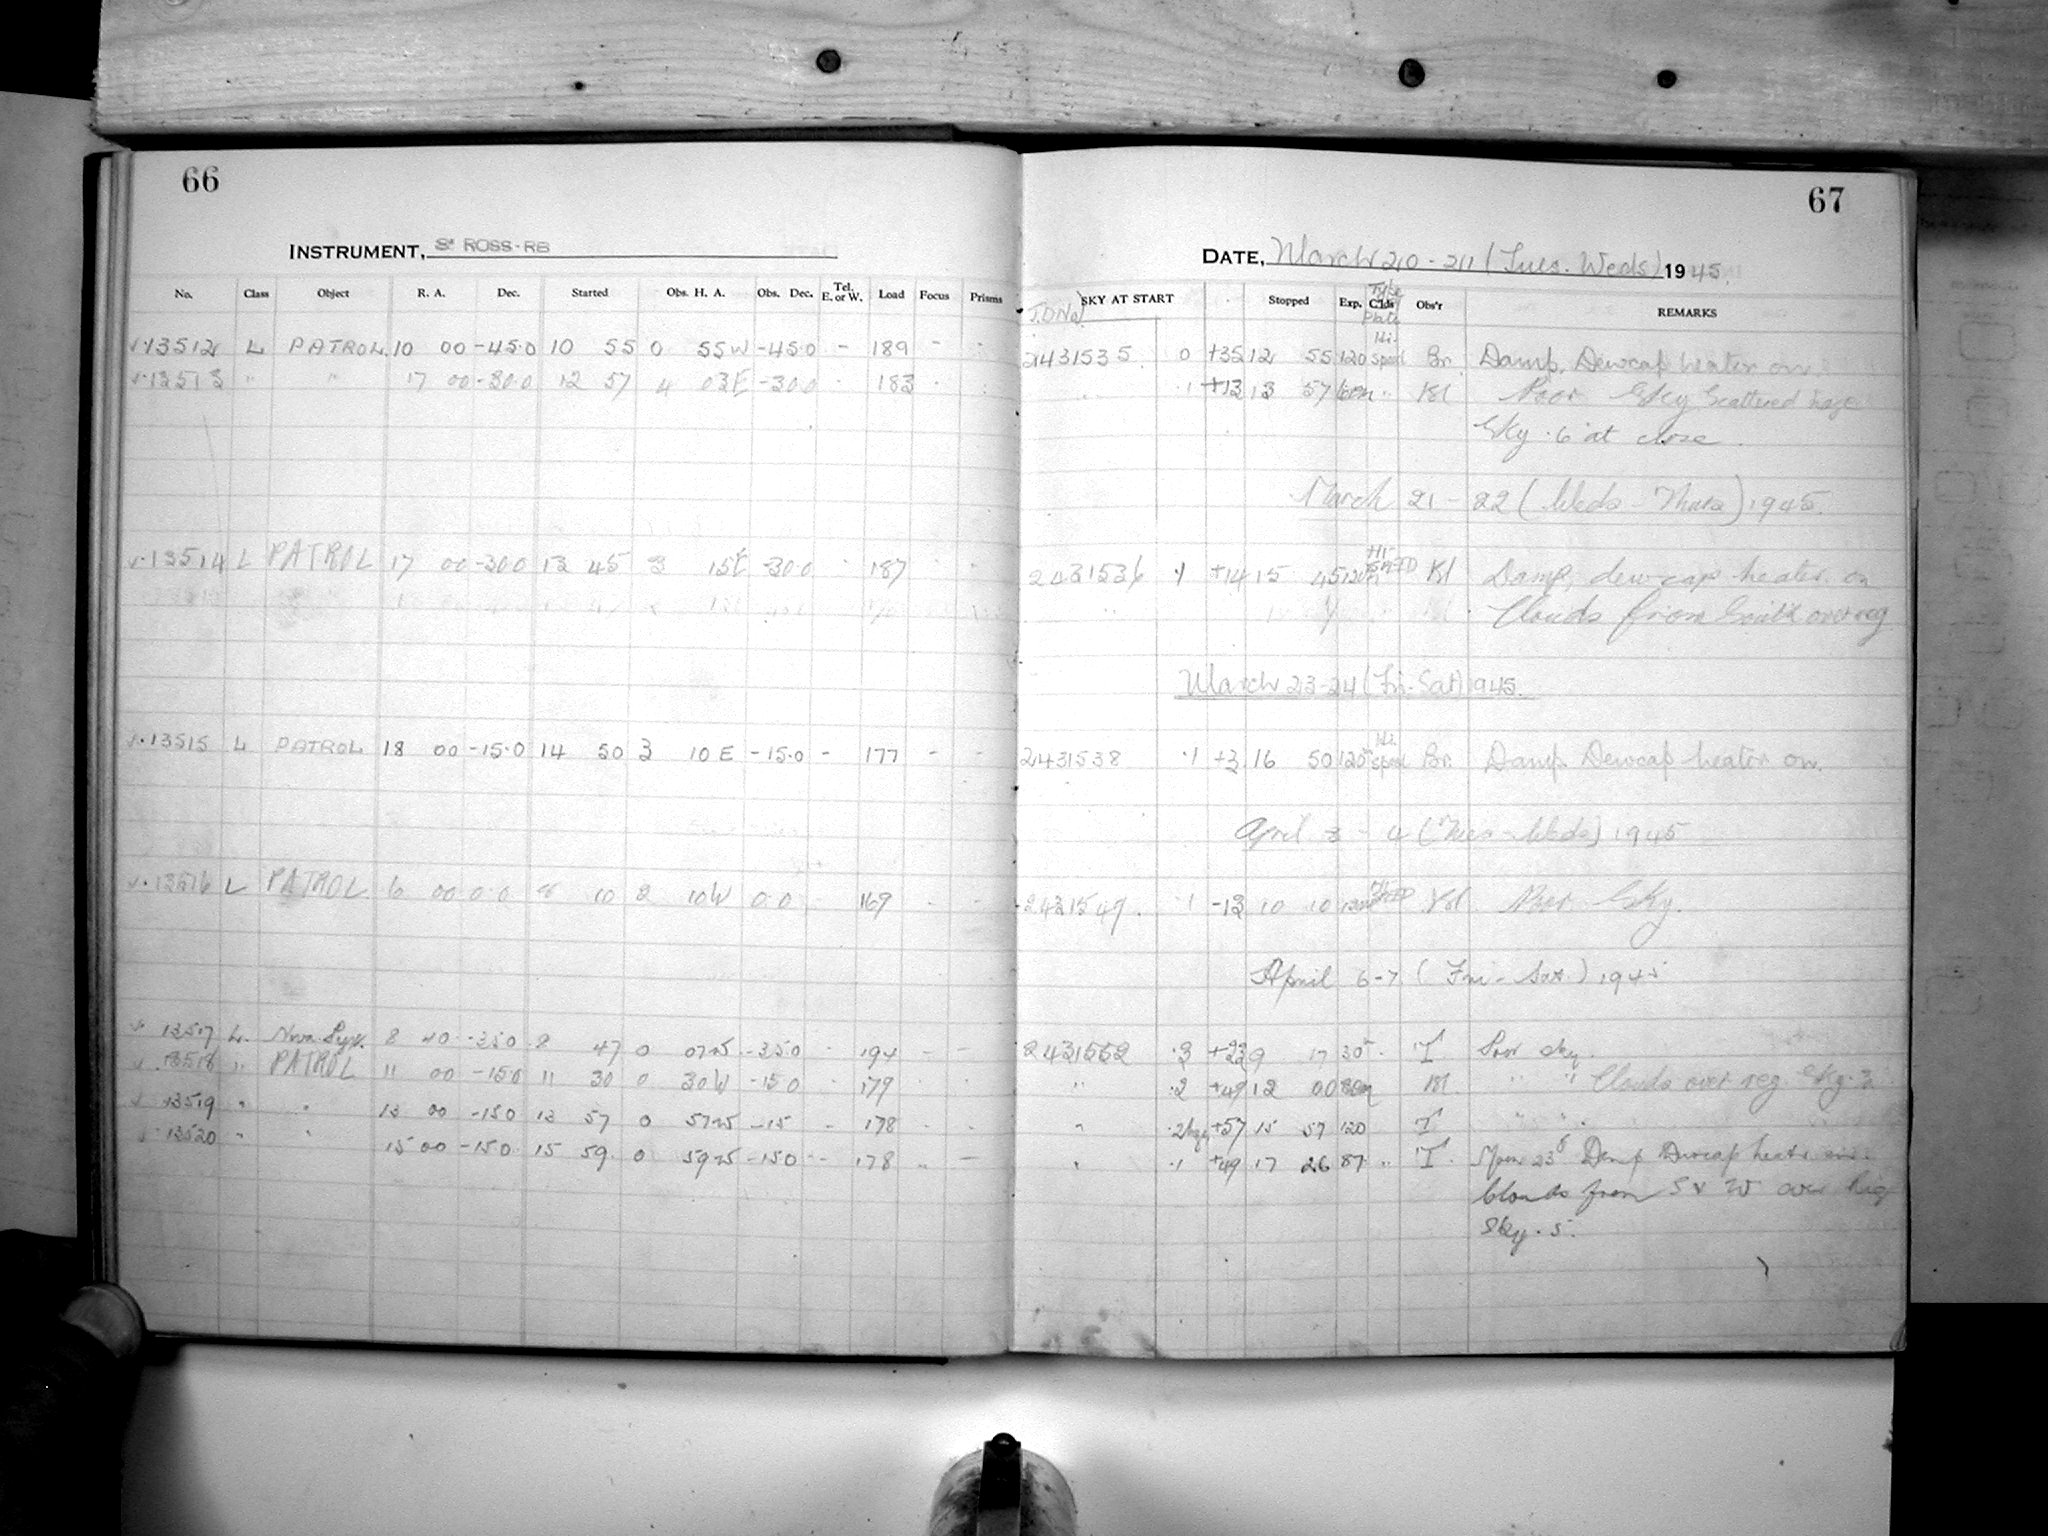 66
INSTRUMENT, 3" ROSS-RB
No. Class Object R. A. Dec. Started Obs. H. A. Obs. Dec. Tel. E. or W. Load Focus Prisms
13512 L PATROL 10 00 -45.0 10 55 0 55W -45.0 - 189 - -
13513 " " 17 00 -30.0 12 57 4 03E -30.0 183
13514 L PATROL 17 00 -30.0 13 45 3 15E -30.0 187
13515 L PATROL 18 00 -15.0 14 50 3 10E -15.0 - 177 - -
13516 L PATROL 6 00 0.0 8 10 2 10W 0.0 169
13517 L. Nova 8 40 -35.0 8 47 0 07W -35.0 - 194 - -
13518 " PATROL 11 00 -15.0 11 30 0 30W -15.0 179
13519 " " 13 00 -15.0 13 57 0 57W -15 - 178
13520 " " 15 00 -15.0 15 59 0 59W -15.0 -- 178 " -
67
DATE, March 20-21 (Tues. Weds) 1945.
J.D No. SKY AT START Stopped Exp. Type Clds Plate Obs'r REMARKS
2431535 0 +35 12 55 120 Hi-Speed Br. Damp. Dewcap heater on.
" .1 +13 13 57 60m " Kl Poor Sky Scattered haze
Sky .6 at close.
March 21-22 (Weds-Thurs) 1945.
2431536 .1 +14 15 45 120 Hi-SPEED Kl Damp, dewcap heater on
Clouds from South over reg
March 23-24 (Fri-Sat) 1945.
2431538 .1 +3 16 50 120 Hi-Speed Br. Damp. Dewcap heater on.
April 3-4 (Tues-Weds) 1945
2431549. .1 -13 10 10 120 Kl Poor Sky.
April 6-7 (Fri-Sat.) 1945
2431552 .3 9 17 30 T Poor sky.
" .2 +49 12 00 30m Kl " " Clouds over reg. Sky .3
" .2 +57 15 57 120 T " "
" .1 +49 17 26 87 " T. Moon 23 Damp Dewcap heater on.
Clouds from S & W over Reg
Sky .5.